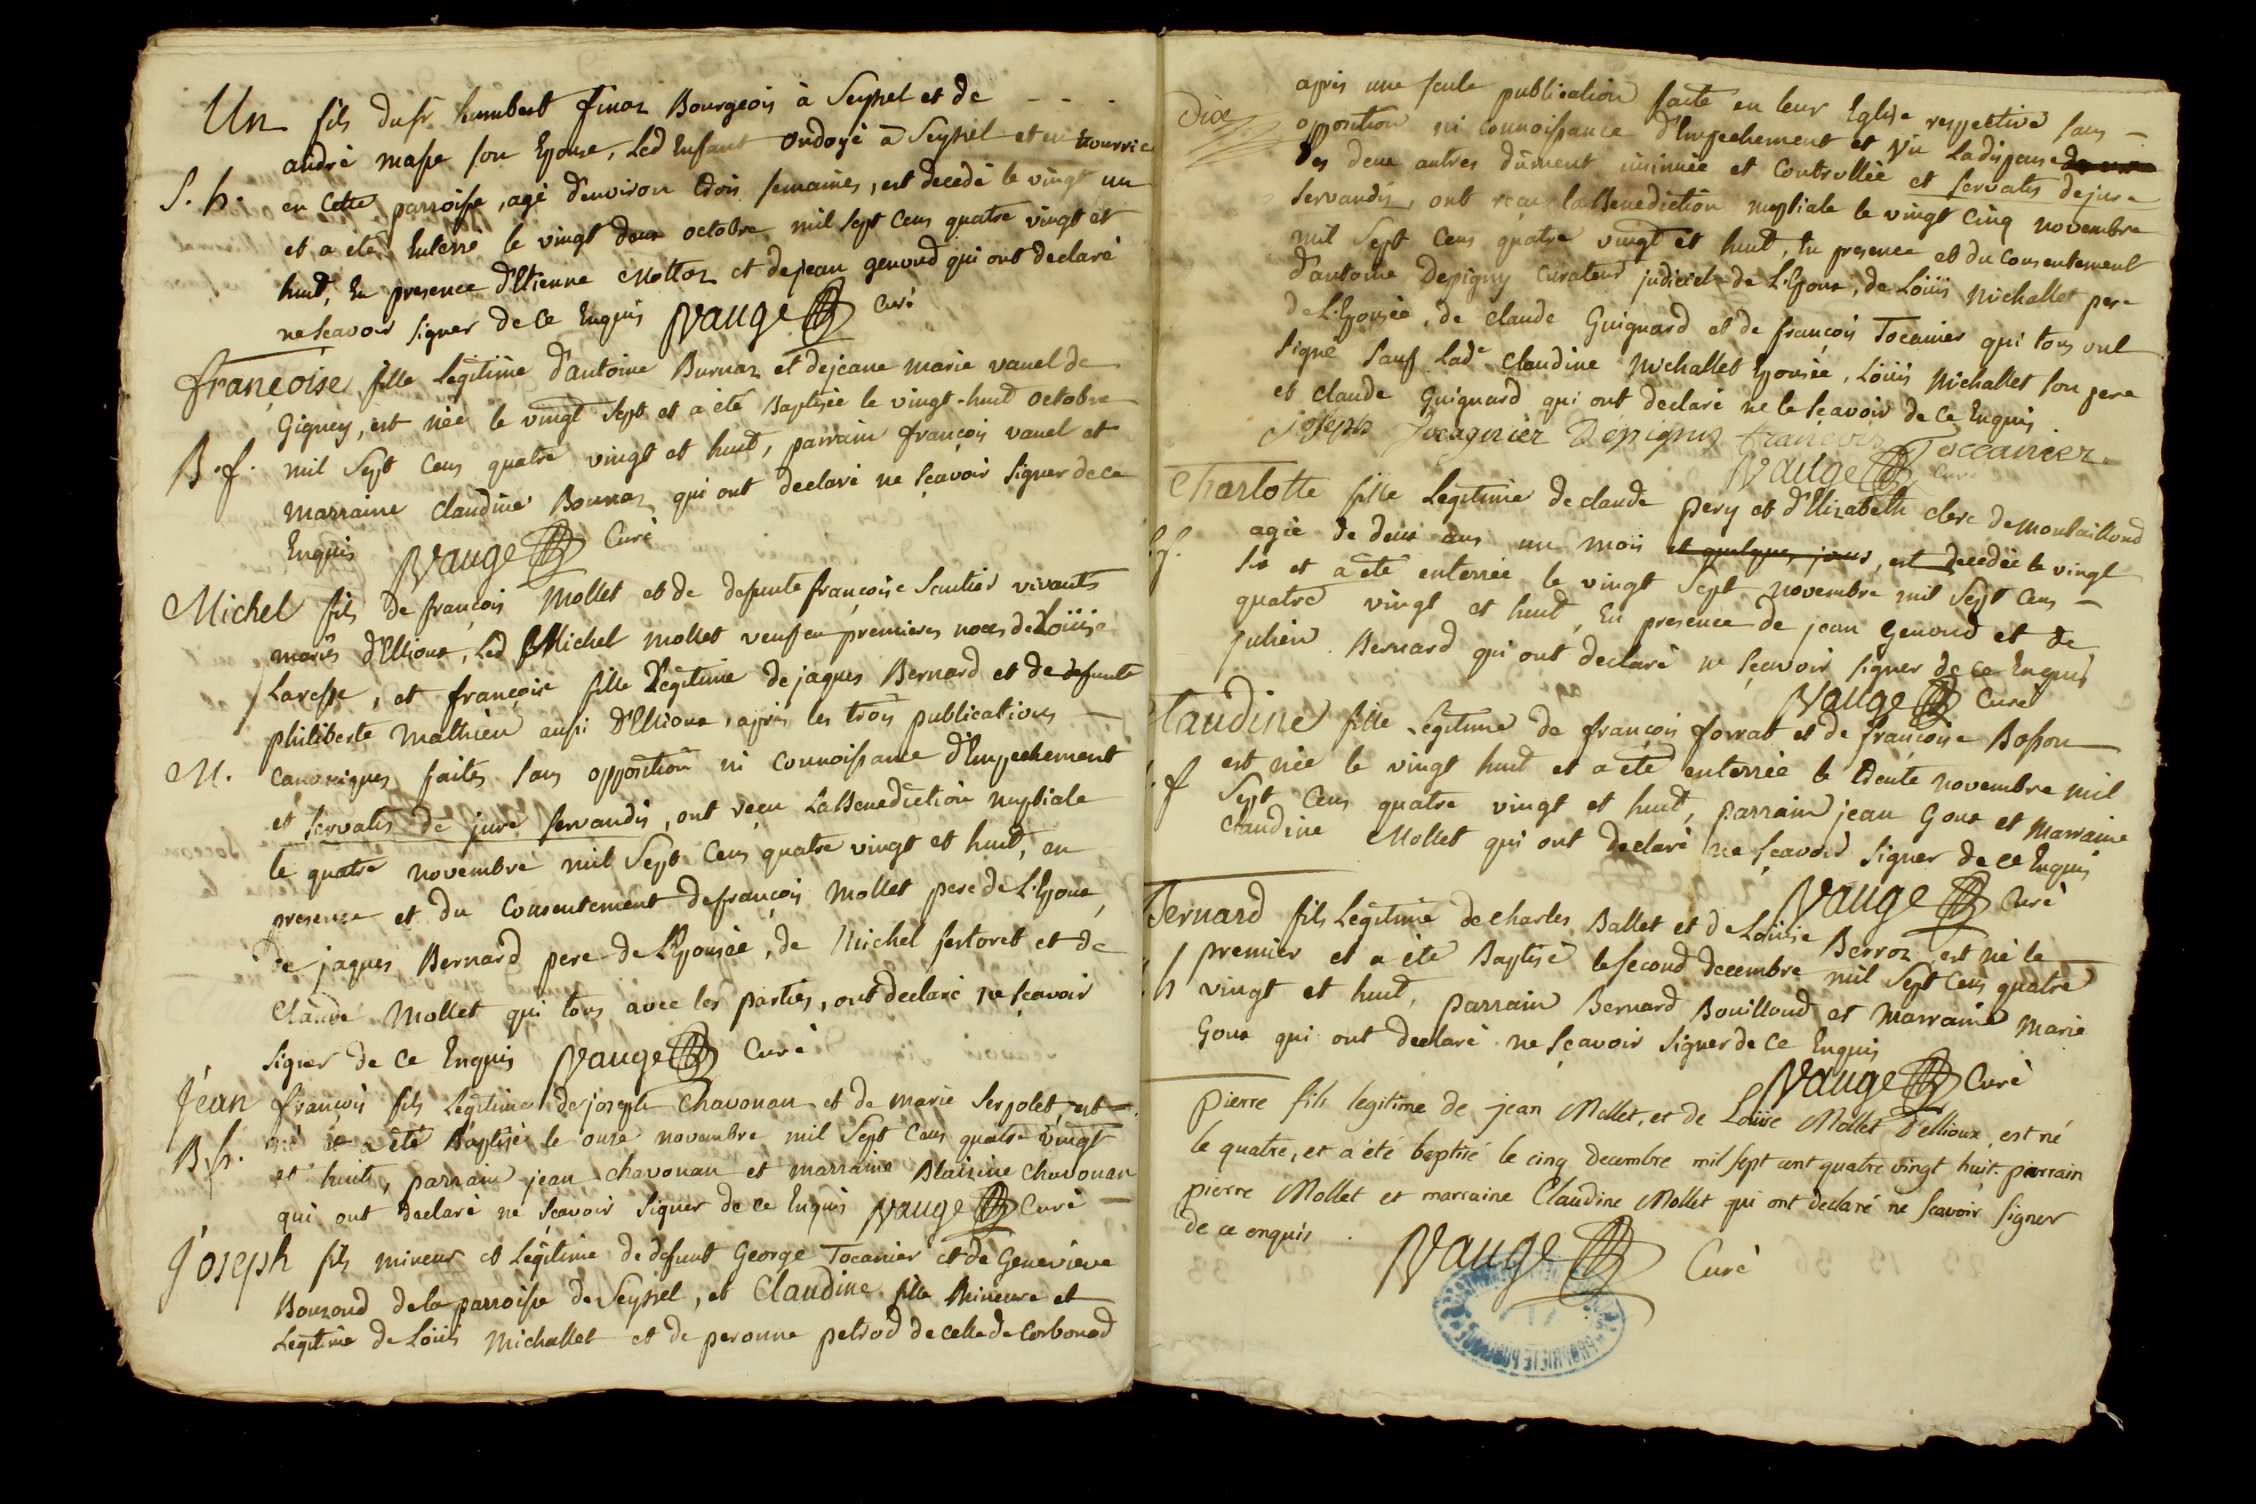 Un fils du sr humbert finaz Bourgeois à Seyssel et de - - -
andrè masse son Epouse, Led Enfant ondoyé a Seyssel et en nourrice
S. h. en Cette parroisse, agé d'environ trois semaines, est decedé le vingt un
et a eté Enterré le vingt deux octobre mil sept Cens quatre vingt et
huit, En presence d'Etienne Mottaz et de jean genoud qui ont declaré
ne scavoir signer de Ce Enquis Vauge Curé
françoise fille Legitime d'antoine Burnaz et de jeane marie vanel de
Gignez, est née le vingt sept et a eté Baptisée le vingt-huit octobre
B. f. mil Sept Cens quatre vingt et huit, parrain françois vanel et
marraine claudine Bournaz qui ont declaré ne sçavoir signer de ce
Enquis Vauge Curé
Michel fils de françois Mollet et de defunte françoise Sautier vivants
mariés d'Ellioux, Led Michel mollet veuf en premieres noces de Loüise
Laresse, et françoise fille Legitime de jaques Bernard et de defunte
philiberte Mathieu aussi d'Ellioux, après les trois publications —
M. canoniques faites sans opposition ni connoissance d'Empechement
et servatis de jure servandis, ont reçu La Benediction nuptiale
le quatre novembre mil Sept Cens quatre vingt et huit, en
presence et du Consentement de françois Mollet pere de L'Epoux,
de jaques Bernard pere de L'Epousée, de Michel fertoret et de
Claude Mollet qui tous avec les parties, ont declaré ne sçavoir
signer de Ce Enquis Vauge Curé
Jean françois fils Legitime de joseph Chavonan et de marie Serpolet, est —
B. h. né et a été Baptisé le onze novembre mil Sept Cens quatre vingt
et huit, parrain jean chavonan et marraine Blaizine chavonan
qui ont declaré ne sçavoir signer de ce Enquis Vauge Curé —
Joseph fils mineur et Legitime de defunt George Tocanier et de Genevieve
Bonzoud de la parroisse de Seyssel, et Claudine fille Mineure et
Legitime de Loüis Michallet et de peronne petrod de celle de Corbonod
après une seule publication faite en leur Eglise respective sans —
opposition ni connoissance d'Empechement et vu La dispense
des deux autres dûment insinuée et Controllée et servatis de jure
servandis, ont reçu la Benediction nuptiale le vingt cinq novembre
mil Sept Cens quatre vingt et huit, En presence et du Consentement
d'antoine Depigny Curateur judiciel de L'Epoux, de Loüis Michallet pere
de L'Epousée, de claude Guignard et de françois Tocanier qui tous ont
signé sauf Lade Claudine Michallet Epousée, Loüis Michallet son pere
et claude Guignard qui ont declaré ne le scavoir de Ce Enquis
Joseph Tocagnier Depigny françois Toccanier
Vauge Curé
Charlotte fille Legitime de claude pery et d'Elizabeth clerc de montailloud
agée de deux ans un mois et quelques jours, est decedée le vingt
six et a eté enterrée le vingt Sept novembre mil Sept Cens —
quatre vingt et huit, En presence de jean Genoud et de
julien Bernard qui ont declaré ne sçavoir signer de ce Enquis
Vauge Curé
Claudine fille Legitime de françois forrat et de françoise Bosson
est née le vingt huit et a eté enterrée le trente novembre mil
f Sept Cens quatre vingt et huit, parrain jean Goux et Marraine
claudine Mollet qui ont declaré ne sçavoir signer de ce Enquis
Vauge Curé
Bernard fils Legitime de charles Ballet et de Loüise Berroz, est né le
premier et a eté Baptisé le second decembre mil Sept Cens quatre
h vingt et huit, parrain Bernard Bouilloud et Marraine Marie
Goux qui ont declaré ne sçavoir signer de Ce Enquis
Vauge Curé
pierre fils legitime de jean Mollet, et de Loüise Mollet d'ellioux, est né
le quatre, et a été baptisé le cinq decembre mil sept cent quatre vingt huit. parrain
pierre Mollet et marraine Claudine Mollet qui ont declaré ne scavoir signer
de ce enquis.
Vauge Curé